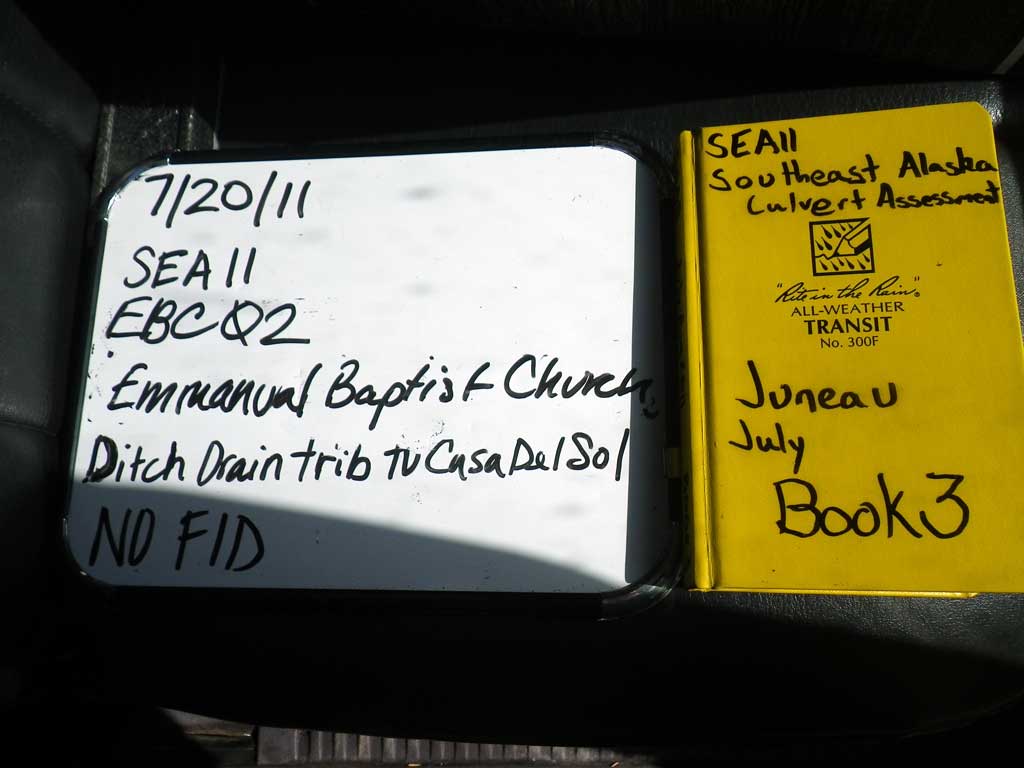 7/20/11
SEA11
EBCQ2
Emmanual Baptist Church
Ditch Drain trib to Casa Del Sol
NO FID
SEA11
Southeast Alaska
Culvert Assessment
"Rite in the Rain"®
ALL-WEATHER
TRANSIT
No. 300F
Juneau
July
Book 3